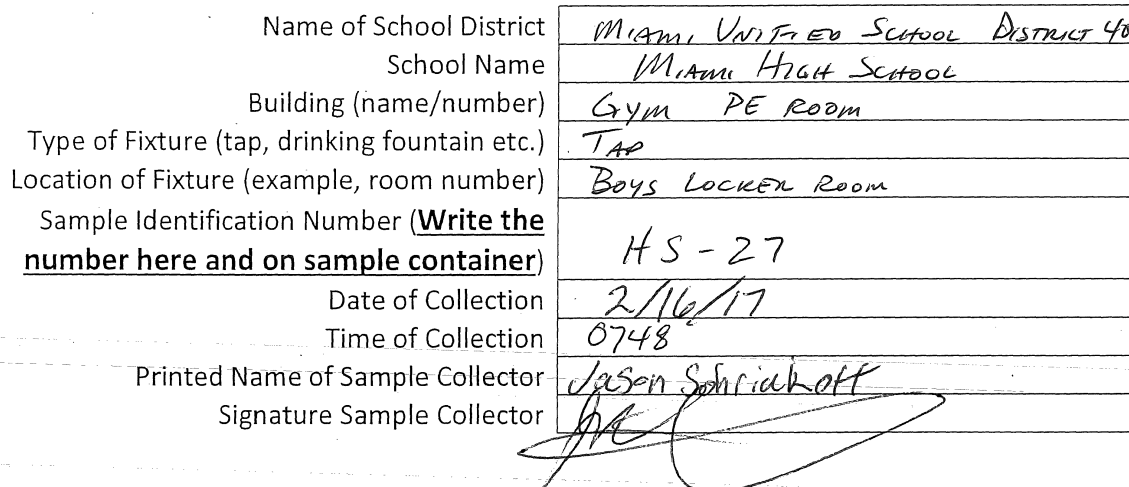 Name of School District Miami Unified School District 40
School Name Miami High School
Building (name/number) Gym PE Room
Type of Fixture (tap, drinking fountain etc.) Tap
Location of Fixture (example, room number) Boys Locker Room
Sample Identification Number (Write the
number here and on sample container) HS-27
Date of Collection 2/16/17
Time of Collection 0748
Printed Name of Sample Collector Jason
Signature Sample Collector